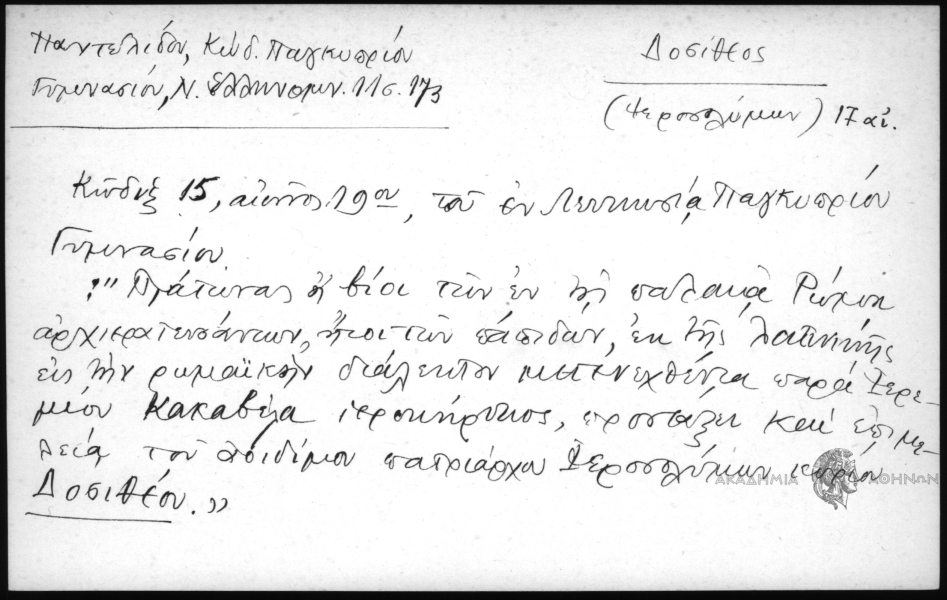 Παντελίδου, Κώδ. Παγκυπρίου
Γυμνασίου, Ν. Ἑλληνομν. 11 σ. 173
Δοσίθεος
(Ἱεροσολύμων) 17 αἰ.
Κῶδιξ 15, αἰῶνος 19ου, τοῦ ἐν Λευκωσίᾳ Παγκυπρίου
Γυμνασίου.
βίοι τῶν ἐν τῇ παλαιᾷ Ρώμῃ
ἀρχιερατευσάντων, ἤτοι τῶν πάπιδων, ἐκ τῆς λατινικῆς
εἰς τὴν ρωμαϊκὴν διάλεκτον μετενεχθέντα παρὰ Ἱερε-
μίου Κακαβέλα ἱεροκήρυκος, προστάξει καὶ ἐπιμε-
λείᾳ τοῦ ἀοιδίμου πατριάρχου Ἱεροσολύμων κυρίου
Δοσιθέου.»
ΑΚΑΔΗΜΙΑ ΑΘΗΝΩΝ